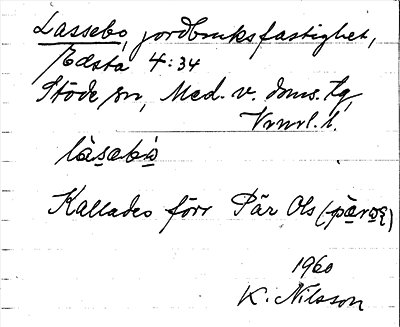 Lassebo, jordbruksfastighet,
Edsta 4:34
Stöde sn, Med. v. doms. tg,
Vrnrl. h.
Kallades förr Pär Ols
1960
K. Nilsson